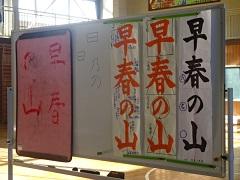 早春の山
早春の山
早春の山
早春
の山